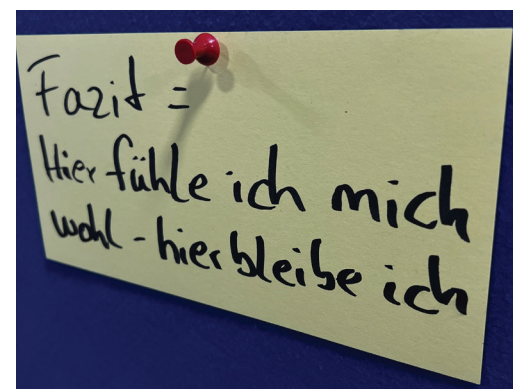 Fazit =
Hier fühle ich mich
wohl - hier bleibe ich